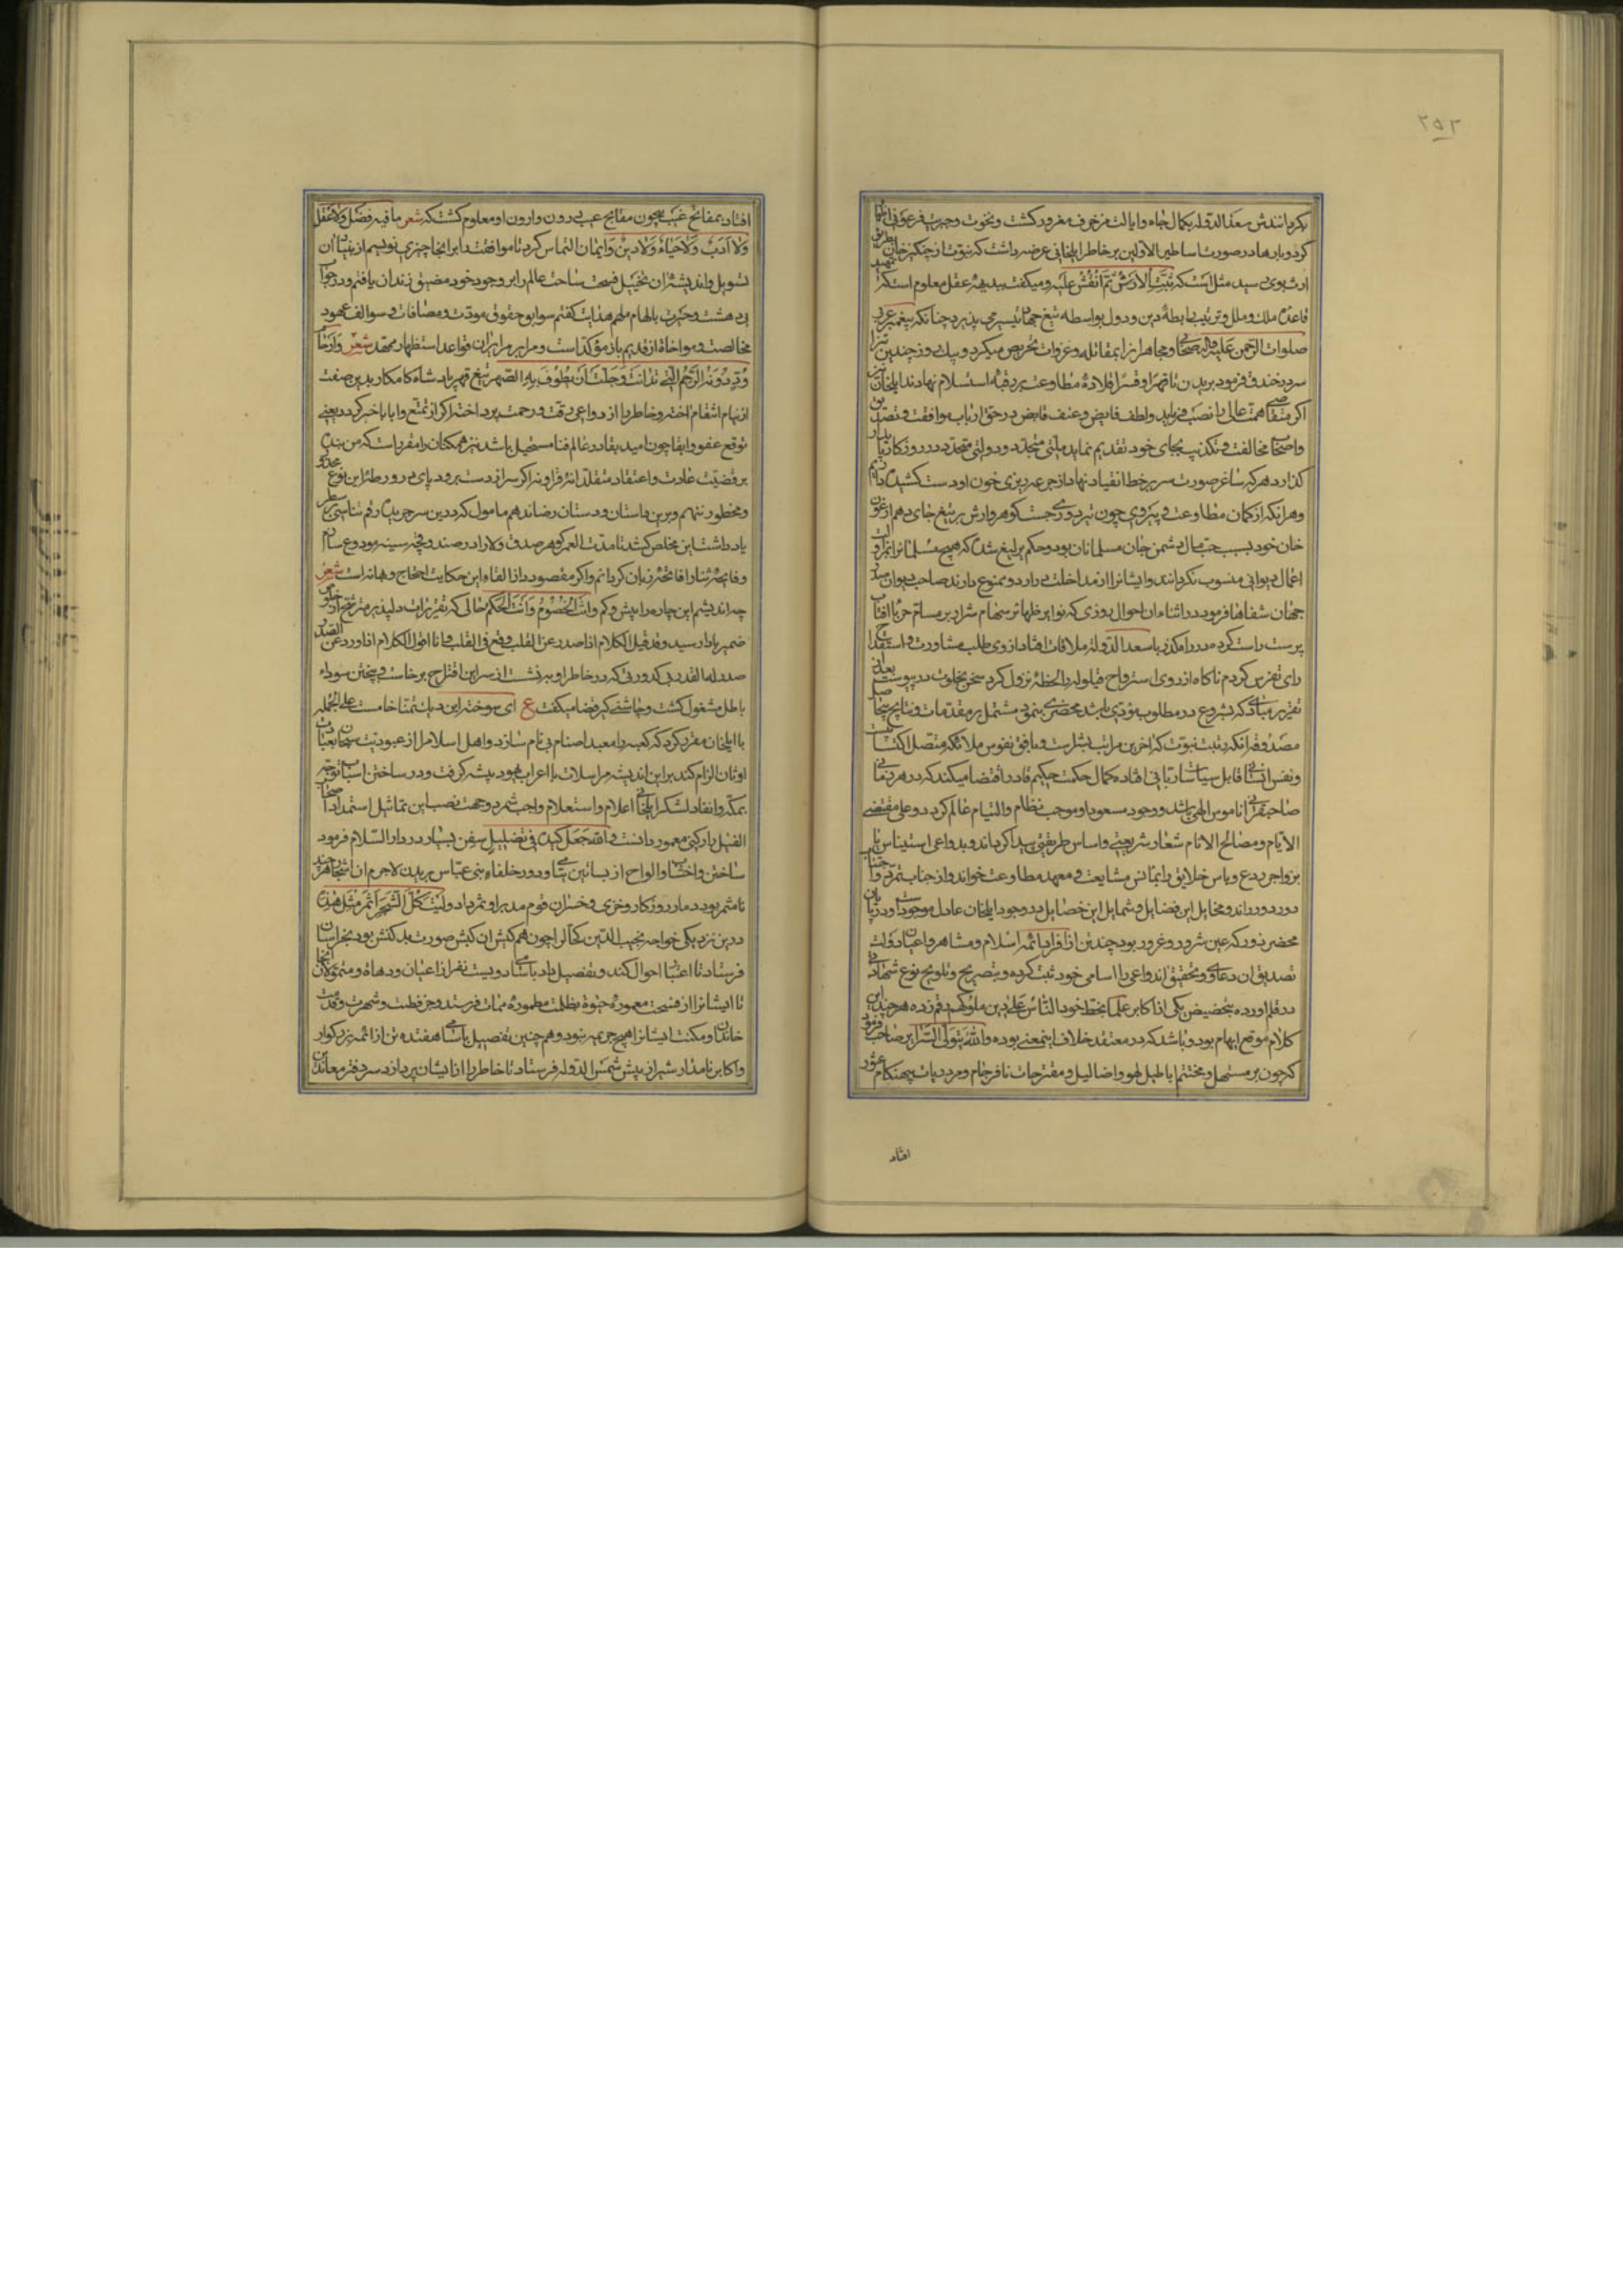 ٢٥٢
بکردانیدش سعد الدوله بکمال جاه و ایالت مزخرف مغرور کشت و نخوت و جبروت فرعونی
کرد و بارها در صورت اساطیر الاولین بر خاطر ایلخانی عرضه داشت که نبوت از چنکیز خان
ارث بوی رسید مثل است که ثبت الارش ثم انقش علیه و میکفت ببدیهه عقل معلوم است که
قاعده ملک و ملل و ترتیب رابطه دین و دول بواسطه تیغ جهانکیر می پذیرد چنانکه پیغمبر عرب
صلوات الرحمن علیه و اله صحابی و مجاهد را بمقاتله و غزوات تحریض میکرد و بیک روز چندین
سر در خندق فرمود بریدن تا قهرا و قسرا قلاده مطاوعت بر رقبه استسلام نهادند ایلخان نیز
اکر همت عالی را نصب فرماید و لطف فایض و عنف قابض در حق ارباب موافقت و تصدیق
و اصحاب مخالفت و تکذیب بجای خود تقدیم نماید ملتی مجدد و دولتی متجدد در روزکار
کذارد هر که ساغر صورت سر بر خط انقیاد نهاد از جرعه ریزی خون او دست کشیده دارم
و هر انکه از کمان مطاوعت پیروی چون تیر دوری جست کوهروارش بر تیغ جای دهم ارغون
خان خود بسبب حب مال دشمن جان مسلمانان بود و حکم یرلیغ شده که هیچ مسلمان را
اعمال دیوانی منسوب نکردانند و ایشانرا از مداخلت در اردو ممنوع دارند صاحب دیوان
جهان شفاها فرمود در اثناء ان احوال روزی که نوایر ظهایر سهام شرار بر مسام حربا افتاب
پرست راست کرده بود در رهکذر با سعد الدوله ملاقات افتاد از وی طلب مشاورت و استمداد
رای تفرس کردم ناکاه از روی استرواح قیلوله را لحظه نزول کرد سخن بخلوت در پیوست بعد از
تقریر مبادی که شروع در مطلوب مودی باشد محضری بنمود مشتمل بر مقدمات و نتایج
مصدر انکه رتبت نبوت که اخرین مراتب بشریت و بافق نفوس ملائکه متصل
و نفس انسانی قابل سیاسات ربانی افتاده کمال حکمت حکیم قادر اقتضا میکند که در هر زمانی
صاحبقرانی با ناموس الهی باشد و وجود مسعود او موجب نظام و التیام عالم کردد و علی مقتضی
الایام و مصالح الانام شعار شریعتی و اساس طریقتی پیدا کرداند و بدواعی استیناس یا
بزواجر ردع و یاس خلایق را بمانس مشایعت و معهد مطاوعت خواند و از جناب تمرد
دور دور راند و مخایل این فضایل و شمایل این خصایل در وجود ایلخان عادل موجود
محضر زور که عین شرور و غرور بود چندین از افراد ائمه اسلام و مشاهیر و اعیان دولت
تصدیق ان دعاوی و تحقیق اندواعی را اسامی خود ثبت کرده و بتصریح و تلویح نوع شهادتی
در قلم اورده بتخصیص یکی از اکابر علما بخط خود الناس علی دین ملوکهم رقم زده هر چند این
کلام موقع ایهام بود و باشد که در معتقد خلاف اینمعنی بوده و الله یتولی السرایر صاحب فرمود
که چون بر مستهل و مختتم اباطیل لهو و اضالیل و مقترحات نافرجام و مردریات بیهنکام عثور
افتاد
افتاد بمفاتح غیب همچون مفاتیح عیب درون وارون او معلوم کشت که شعر ما فیه فضل ولا عقل
ولا ادب ولا حیاء ولا دین و ایمان التماس کرد تا موافقت را بر انجا چیزی نویسم از
تسویل و اندیشه ان تخییل فسحت ساحت عالم را بر وجود خود مضیق زندان یافتم و در جواب
بی دهشت و حیرت بالهام ملهم هدایت کفتم سوابق حقوق مودت و مصافات و سوالف عهود
مخالصت و مواخاة از قدیم باز مؤکد است و مرایر مرابران قواعد استظهار ممهد شعر
و ترد دونه الرحم التی تدانت وجلت ان یطوف به الصهر تیغ قهر پادشاه کامکار بدین صفت
از نیام انتقام اخته و خاطر را از دواعی رقت و رحمت پرداخته اکر از تمتع و ابا با خبر کردد یعنی
توقع عفو و ابقا چون امید بقا در عالم فنا مستحیل باشد نیز همکنان را مقرر است که من بنده
بر قضیت عادت و اعتقاد متقلد ائر فراونه اکر سر از دست برود پای در ورطه این نوع
و محظور ننهم و برین داستان و دستان رضا ندهم مامول که در دین سر جریده رقم شناسی
یاد داشت این مخلص کشد تا مدت العمر کوهر صدق ولا را در صندوقچه سینه مودوع سازم
و فاتحه ثنا را فاتحه زبان کردانم و اکر مقصود از القاء این حکایت احتجاج و بهانه است شعر
چه اندیشم این چاره را پیش و کم و انت الخصوم و انت الحکم حالی که تقریرات دلپذیر مترشح از
ضمیر باد رسید و قد قیل الکلام اذا صدر عن القلب وقع فی القلب فانا اقول الکلام اذا ورد عن الصدر
صدر له القدر کدورتی که در خاطر او بنشست از سر این اقتراح برخاست و به پختن سوداء
باطل مشغول کشت و چاشنی کیر قضا میکفت ع ای سوخته این دیک تمنا خامست علی الجمله
با ایلخان مقرر کرد که کعبه را معبد اصنام بی نام سازد و اهل اسلام را از عبودیت سبحان بعبادت
اوثان الزام کند بر این اندیشه مراسلات با اعراب یهود پیشه کرفت و در ساختن اسباب توجه
بمکه و انفاد لشکر ایلخانی اعلام و استعلام واجب شمرد و جهت نصب این تماثیل استمداد اصحاب
الفیل یار کنی معمور دانست و الله جعل کیده فی تضلیل سفن بسیار در دار السلام فرمود
ساختن و اخشاب و الواح از بساتین و دور خلفاء بنی عباس بریدن لاجرم ان اشجار هر چند
نامثمر بود دمار روزکار و خزی و خسران قوم مدبر او ثمر داد ولیت کل الشجر اثمر مثل هذا
در این نزدیکی خواجه نجیب الدین کحال را چون هم کیش ان کبش صورت بد کنش بود بخراسان
فرستاد تا اعتبار احوال کند و بتفصیل داد باسامی دویست نفر از اعیان و دهاة و متمولان انجا
تا ایشانرا از فسحت معموره حیوة بظلمت مطموره ممات فرستد و جز فطنت و شهرت و قدمت
خاندان و مکنت ایشانرا هیچ جریمه نبود و هم چنین تفصیل باسامی هفده تن از ائمه بزرکوار
و اکابر نامدار شیراز پیش شمس الدوله فرستاد تا خاطر را از ایشان بپردازد سر دفتر معاندان